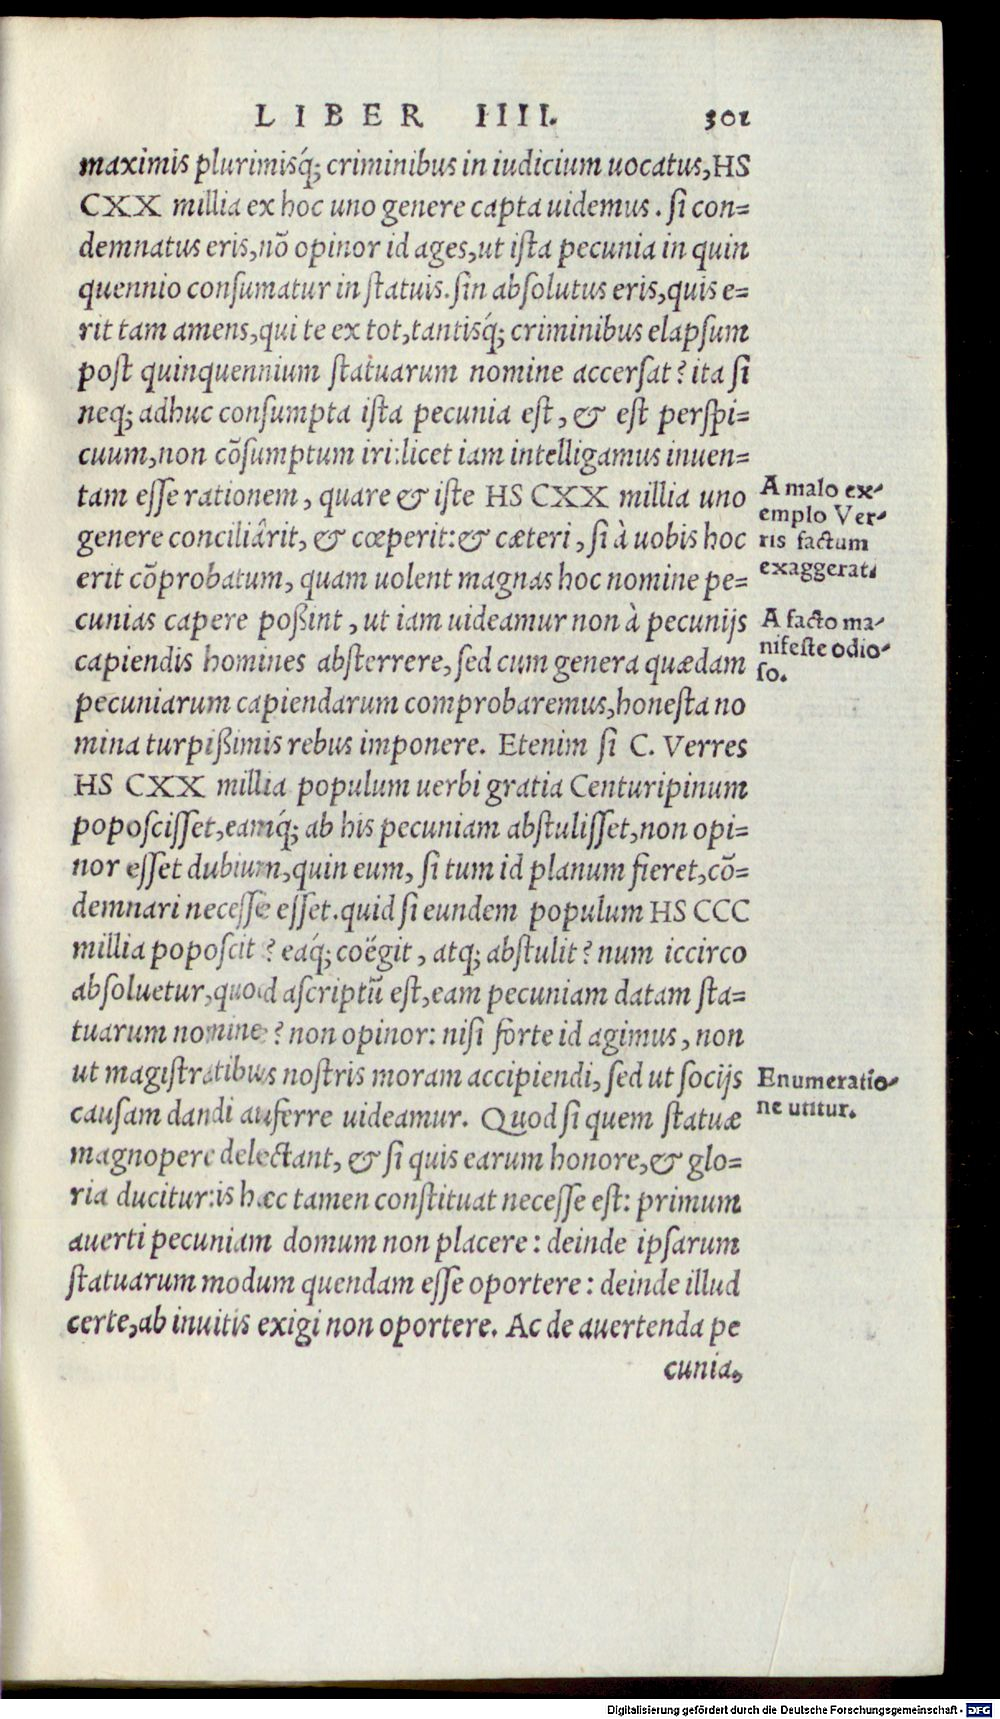 LIBER IIII. 301
maximis plurimisq́; criminibus in iudicium uocatus, HS
CXX millia ex hoc uno genere capta uidemus. si con=
demnatus eris, nõ opinor id ages, ut ista pecunia in quin
quennio consumatur in statuis. sin absolutus eris, quis e=
rit tam amens, qui te ex tot, tantisq́; criminibus elapsum
post quinquennium statuarum nomine accersat? ita si
neq; adhuc consumpta ista pecunia est, & est perspi=
cuum, non cõsumptum iri: licet iam intelligamus inuen=
tam esse rationem, quare & iste HS CXX millia uno
genere conciliârit, & cœperit: & cæteri, si à uobis hoc
erit cõprobatum, quam uolent magnas hoc nomine pe=
cunias capere poßint, ut iam uideamur non à pecunijs
capiendis homines absterrere, sed cum genera quædam
pecuniarum capiendarum comprobaremus, honesta no
mina turpißimis rebus imponere. Etenim si C. Verres
HS CXX millia populum uerbi gratia Centuripinum
poposcisset, eamq́; ab his pecuniam abstulisset, non opi=
nor esset dubium, quin eum, si tum id planum fieret, cõ=
demnari necesse esset. quid si eundem populum HS CCC
millia poposcit? eaq́; coëgit, atq; abstulit? num iccirco
absoluetur, quod ascriptũ est, eam pecuniam datam sta=
tuarum nomine? non opinor: nisi forte id agimus, non
ut magistratibus nostris moram accipiendi, sed ut socijs
causam dandi auferre uideamur. Quod si quem statuæ
magnopere delectant, & si quis earum honore, & glo=
ria ducitur: is hæc tamen constituat necesse est: primum
auerti pecuniam domum non placere: deinde ipsarum
statuarum modum quendam esse oportere: deinde illud
certe, ab inuitis exigi non oportere. Ac de auertenda pe
cunia,
A malo ex-
emplo Ver-
ris factum
exaggerat.
A facto ma-
nifeste odio-
so.
Enumeratio-
ne utitur.
Digitalisierung gefördert durch die Deutsche Forschungsgemeinschaft - DFG